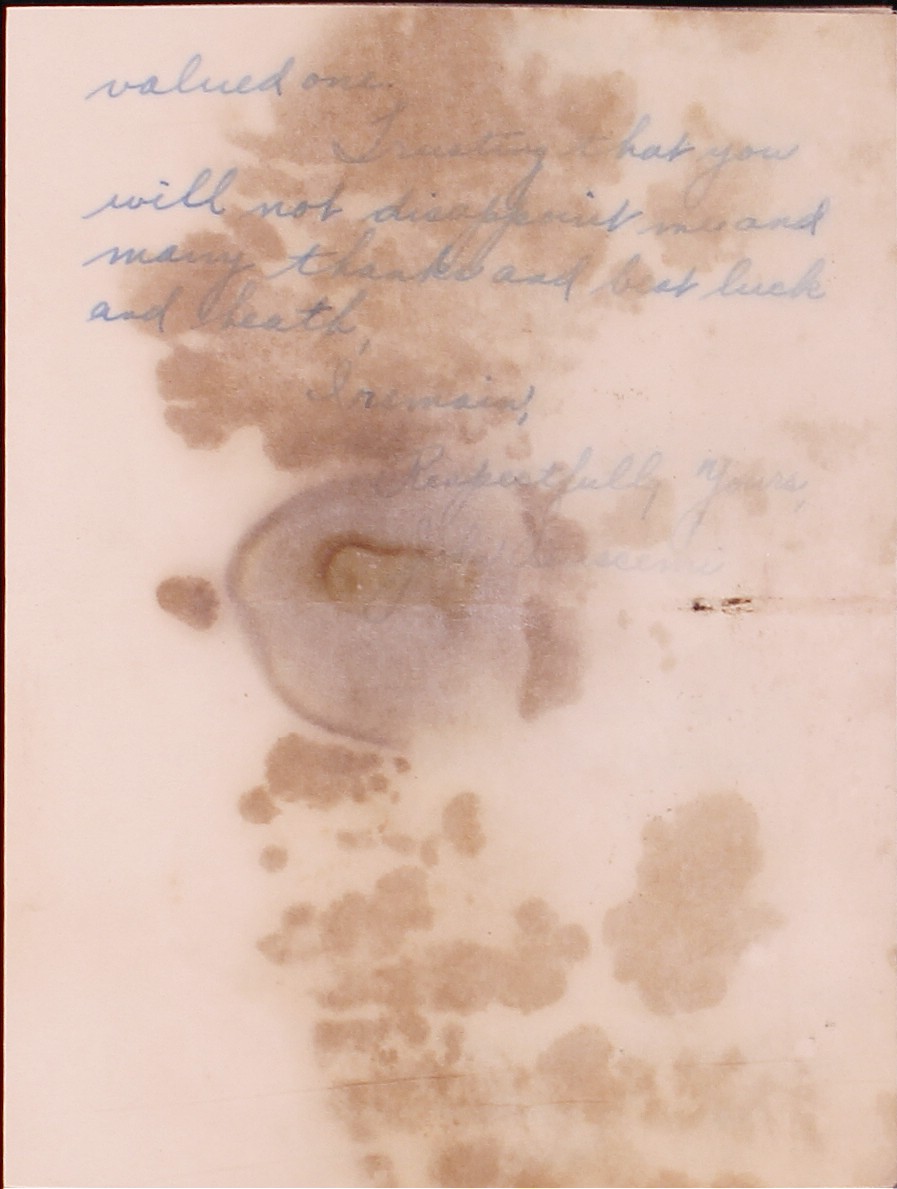 valued one.
Trusting that you
will not disappoint me and
many thanks and best luck
and heath,
I remain,
Respectfully Yours,